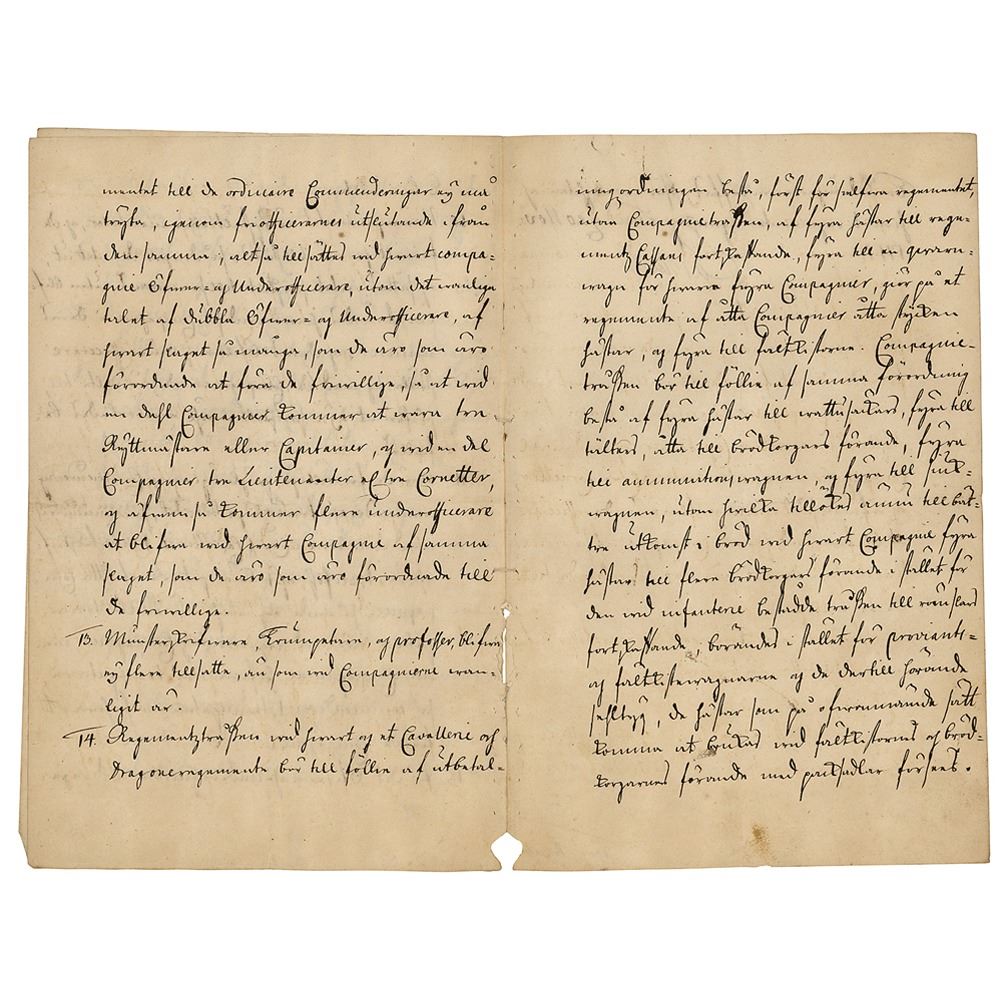 mentet till de ordinaire Commenderingar ey må
tryta, igenom friofficerarnes uthslutande ifrån
dem samma; altså tillsättes wid hwart compa-
gnie Öfwer- og Underofficerare, utom det wanliga
talet af dubbla Öfwer- og Underofficerare, af
hwart slaget så många, som de äro som äro
förordnade at föra de friwillige, så at wid
en dehl Compagnier kommer at wara tre
Ryttmästare eller Capitainer, og wid en del
Compagnier tre Lieutenanter el tre Cornetter,
og äfwen så kommer flere underofficerare
at blifwa wid hwart Compagnie af samma
slaget, som de äro som äro förordnade till
de friwillige.
13. Munsterskrifware, Trumpetare, og profosser, blifwa
ey flere tillsatte, än som wid Compagnierne wan-
ligit är.
14. Regementztrossen wid hwart og et Cavallerie och
Dragoneregemente bör till föllie af utbetal-
ningordningen bestå, först för siälfwa regementet,
utom Compagnietrossen, af fyra hästar till rege-
mentz Cassans fortskaffande, fyra till en qwarn-
wagn för hwarie fyra Compagnier, giör på et
regemente af åtta Compagnier åtta stycken
hästar, og fyra till fältkistorne. Compagnie-
trossen bör till föllie af samma förordning
bestå af fyra hästar till wattusäckars, fyra till
tälters, åtta till brödkorgars förande, fyra
till ammunitionswagnen, og fyra till siuk-
wagnen, utom hwilka tillökes ännu till bät-
tre utkomst i bröd wid hwart Compagnie fyra
hästar till flere brödkorgars förande i stället för
den wid infanteriet bestådde trossen till
fortskaffande, börandes i stället för proviants-
og fältkistewagnarne og de dertill hörande
seltyg, de hästar som på ofwannämde sätt
komma at brukas wid fältkistorns og bröd-
korgarnes förande med packsadlar förses.